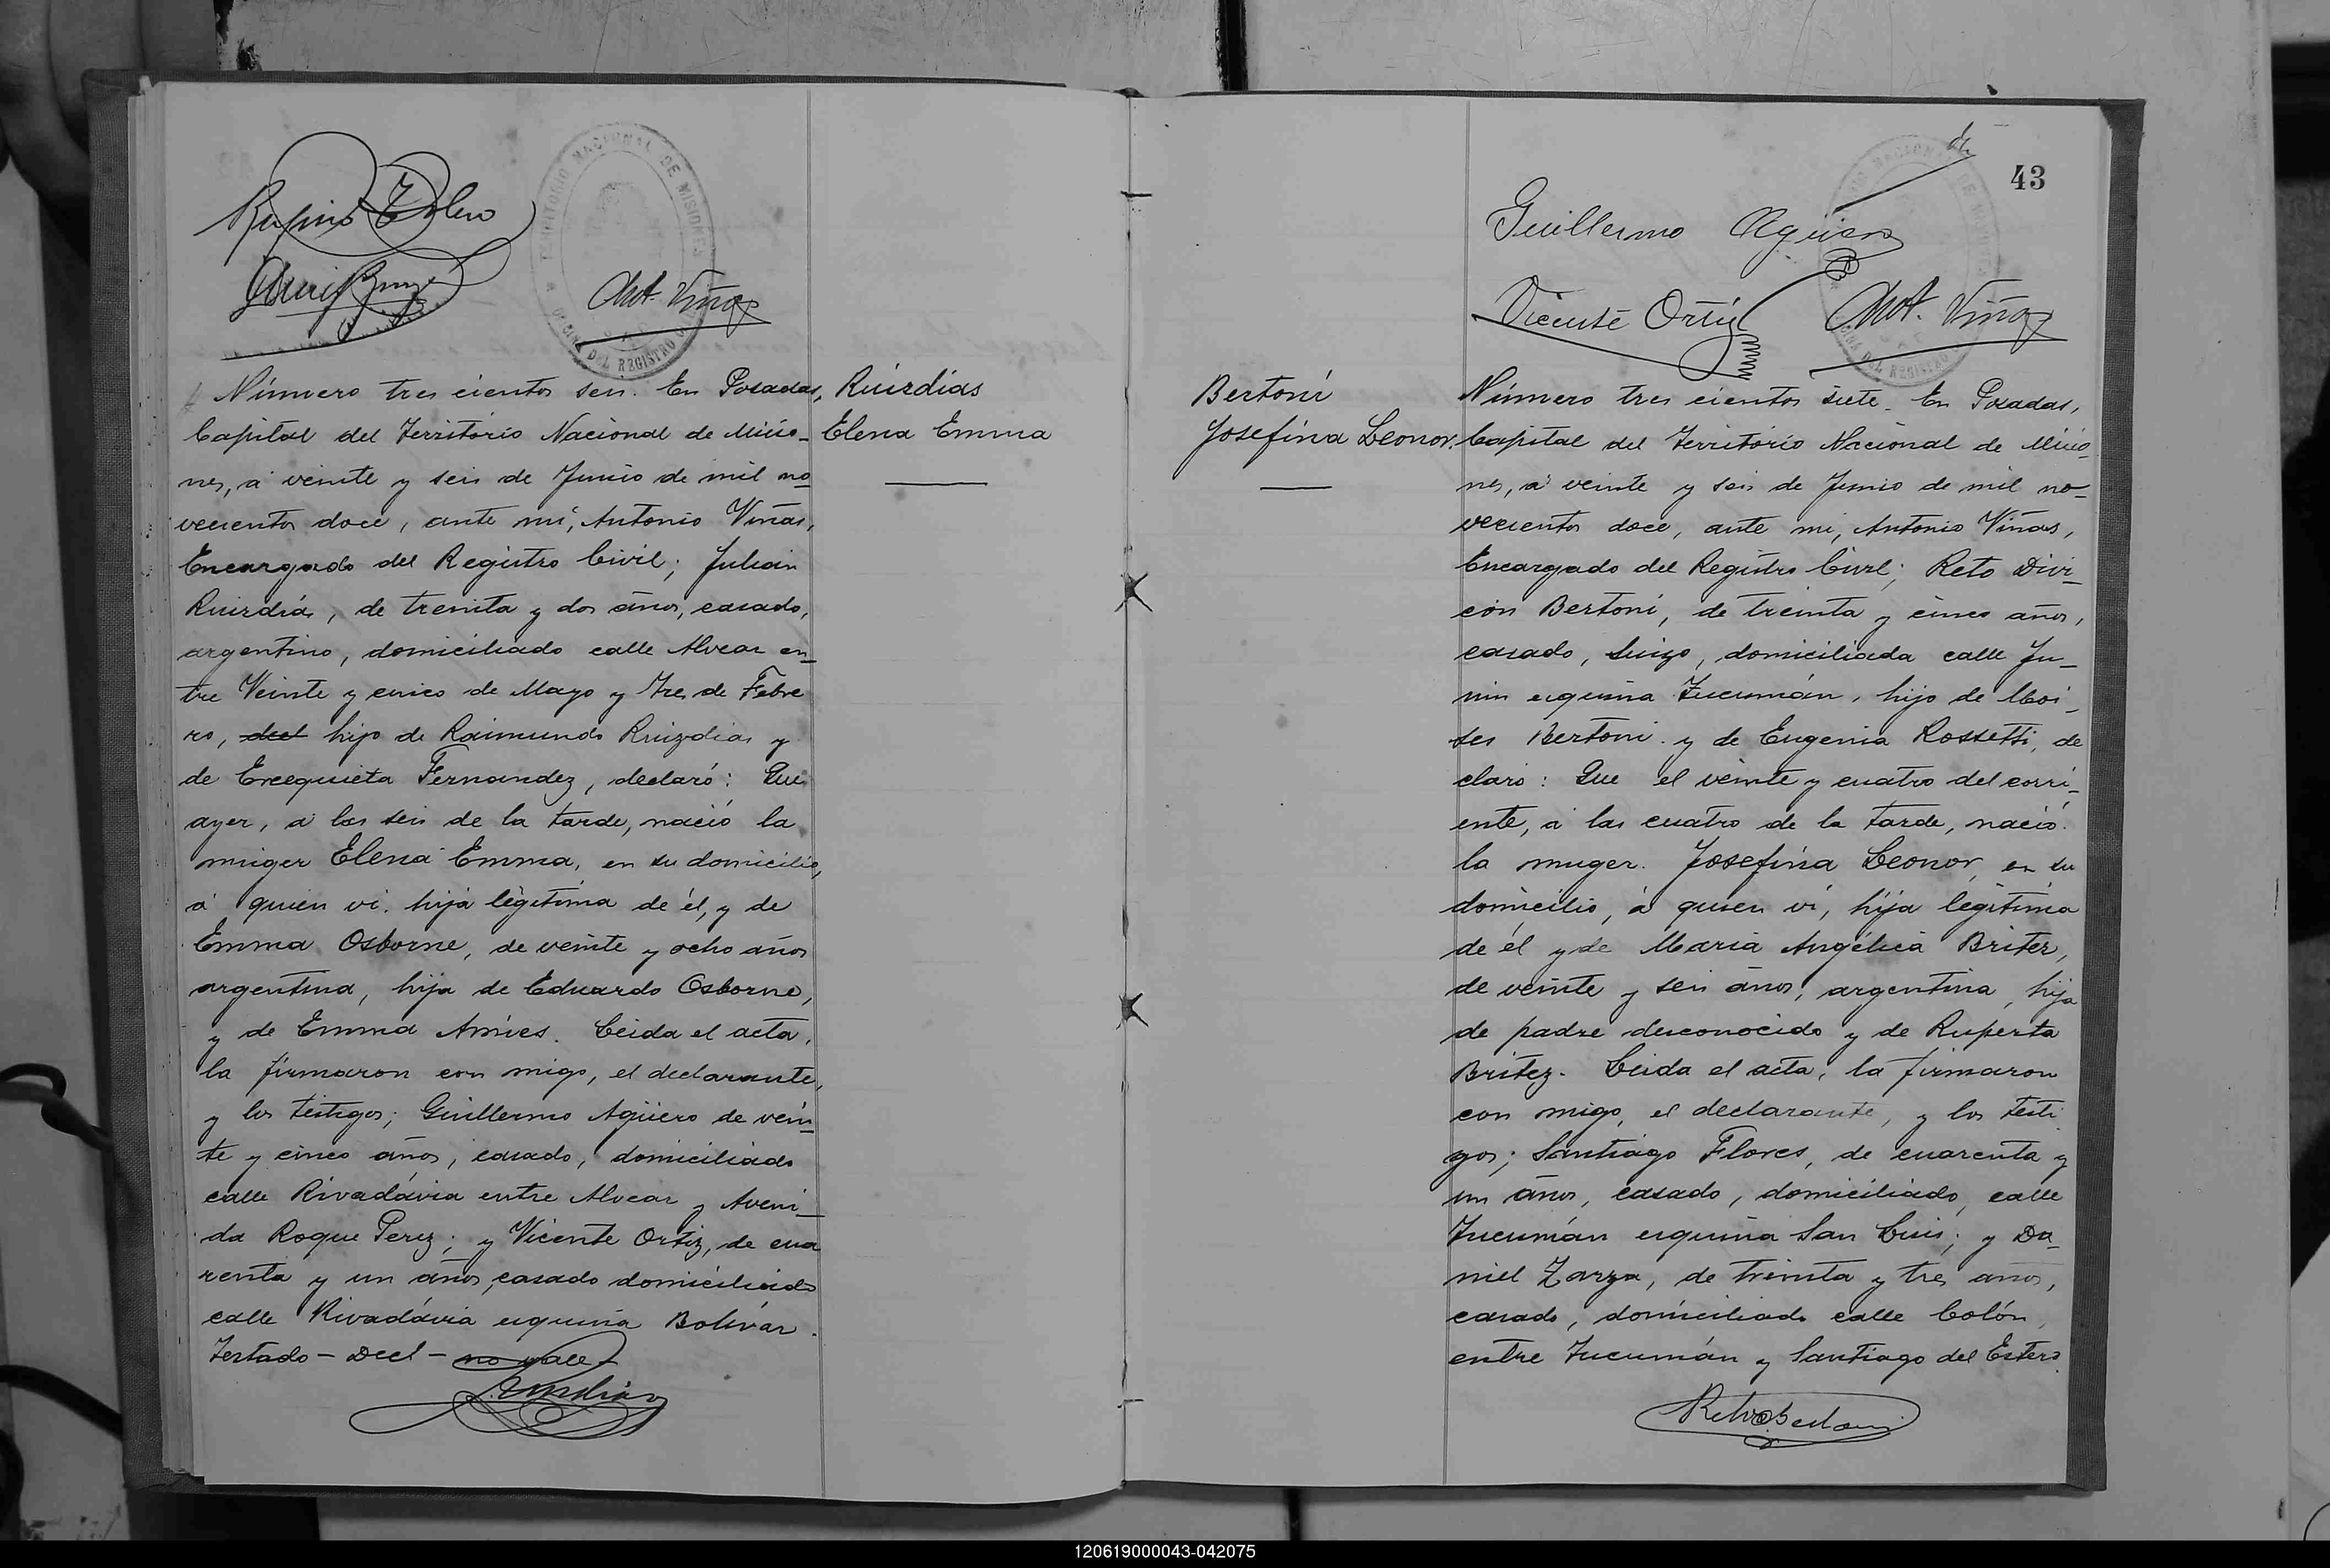 Guillermo Agüero
Vicente Ortiz
Ant. Viñas
Ant. Viñas
43
TERRITORIO NACIONAL DE MISIONES
OFICINA DEL REGISTRO
Número tres cientos seis. En Posadas,
Capital del Territorio Nacional de Misio-
nes, á veinte y seis de Junio de mil no
vecientos doce, ante mi, Antonio Viñas,
Encargado del Registro Civil; Julian
Ruizdias, de treinta y dos años, casado,
argentino, domiciliado calle Alvear en-
tre Veinte y cinco de Mayo y Tres de Febre
ro, decl hijo de Raimundo Ruizdias y
de Ercequieta Fernandez, declaró: Que
ayer, á las seis de la tarde, nació la
muger Elena Emma, en su domicilio,
á quien vi, hija legitima de él, y de
Emma Osborne, de veinte y ocho años
argentina, hija de Eduardo Osborne,
y de Emma Amives. Leida el acta,
la firmaron con migo, el declarante,
y los testigos; Guillermo Agüero de vein
te y cinco años, casado, domiciliado
calle Rivadávia entre Alvear y Aveni-
da Roque Perez; y Vicente Ortiz, de cua
renta y un años, casado domiciliado
calle Rivadávia esquina Bolívar.
Testado - Decl - no vale
Ruizdias
Elena Emma
Bertoni
Josefina Leonor.
Número tres cientos siete. En Posadas,
Capital del Territorio Nacional de Misio-
nes, á veinte y seis de Junio de mil no-
vecientos doce, ante mi, Antonio Viñas,
Encargado del Registro Civil; Reto Divi-
cón Bertoni, de treinta y cinco años,
casado, Suizo, domiciliada calle Ju-
nin esquina Tucumán, hijo de Moi-
ses Bertoni y de Eugenia Rossetti, de
claró: Que el veinte y cuatro del corri-
ente, á las cuatro de la tarde, nació
la muger. Josefina Leonor, en su
domicilio, á quien vi, hija legitima
de él y de Maria Angélica Britez,
de veinte y seis años, argentina, hija
de padre desconocido y de Ruperta
Britez. Leida el acta, la firmaron
con migo, el declarante, y los testi
gos; Santiago Flores, de cuarenta y
un años, casado, domiciliado, calle
Tucumán esquina San Luis; y Da-
niel Zarza, de treinta y tres años,
casado, domiciliado calle Colón,
entre Tucumán y Santiago del Estero.
120619000043-042075